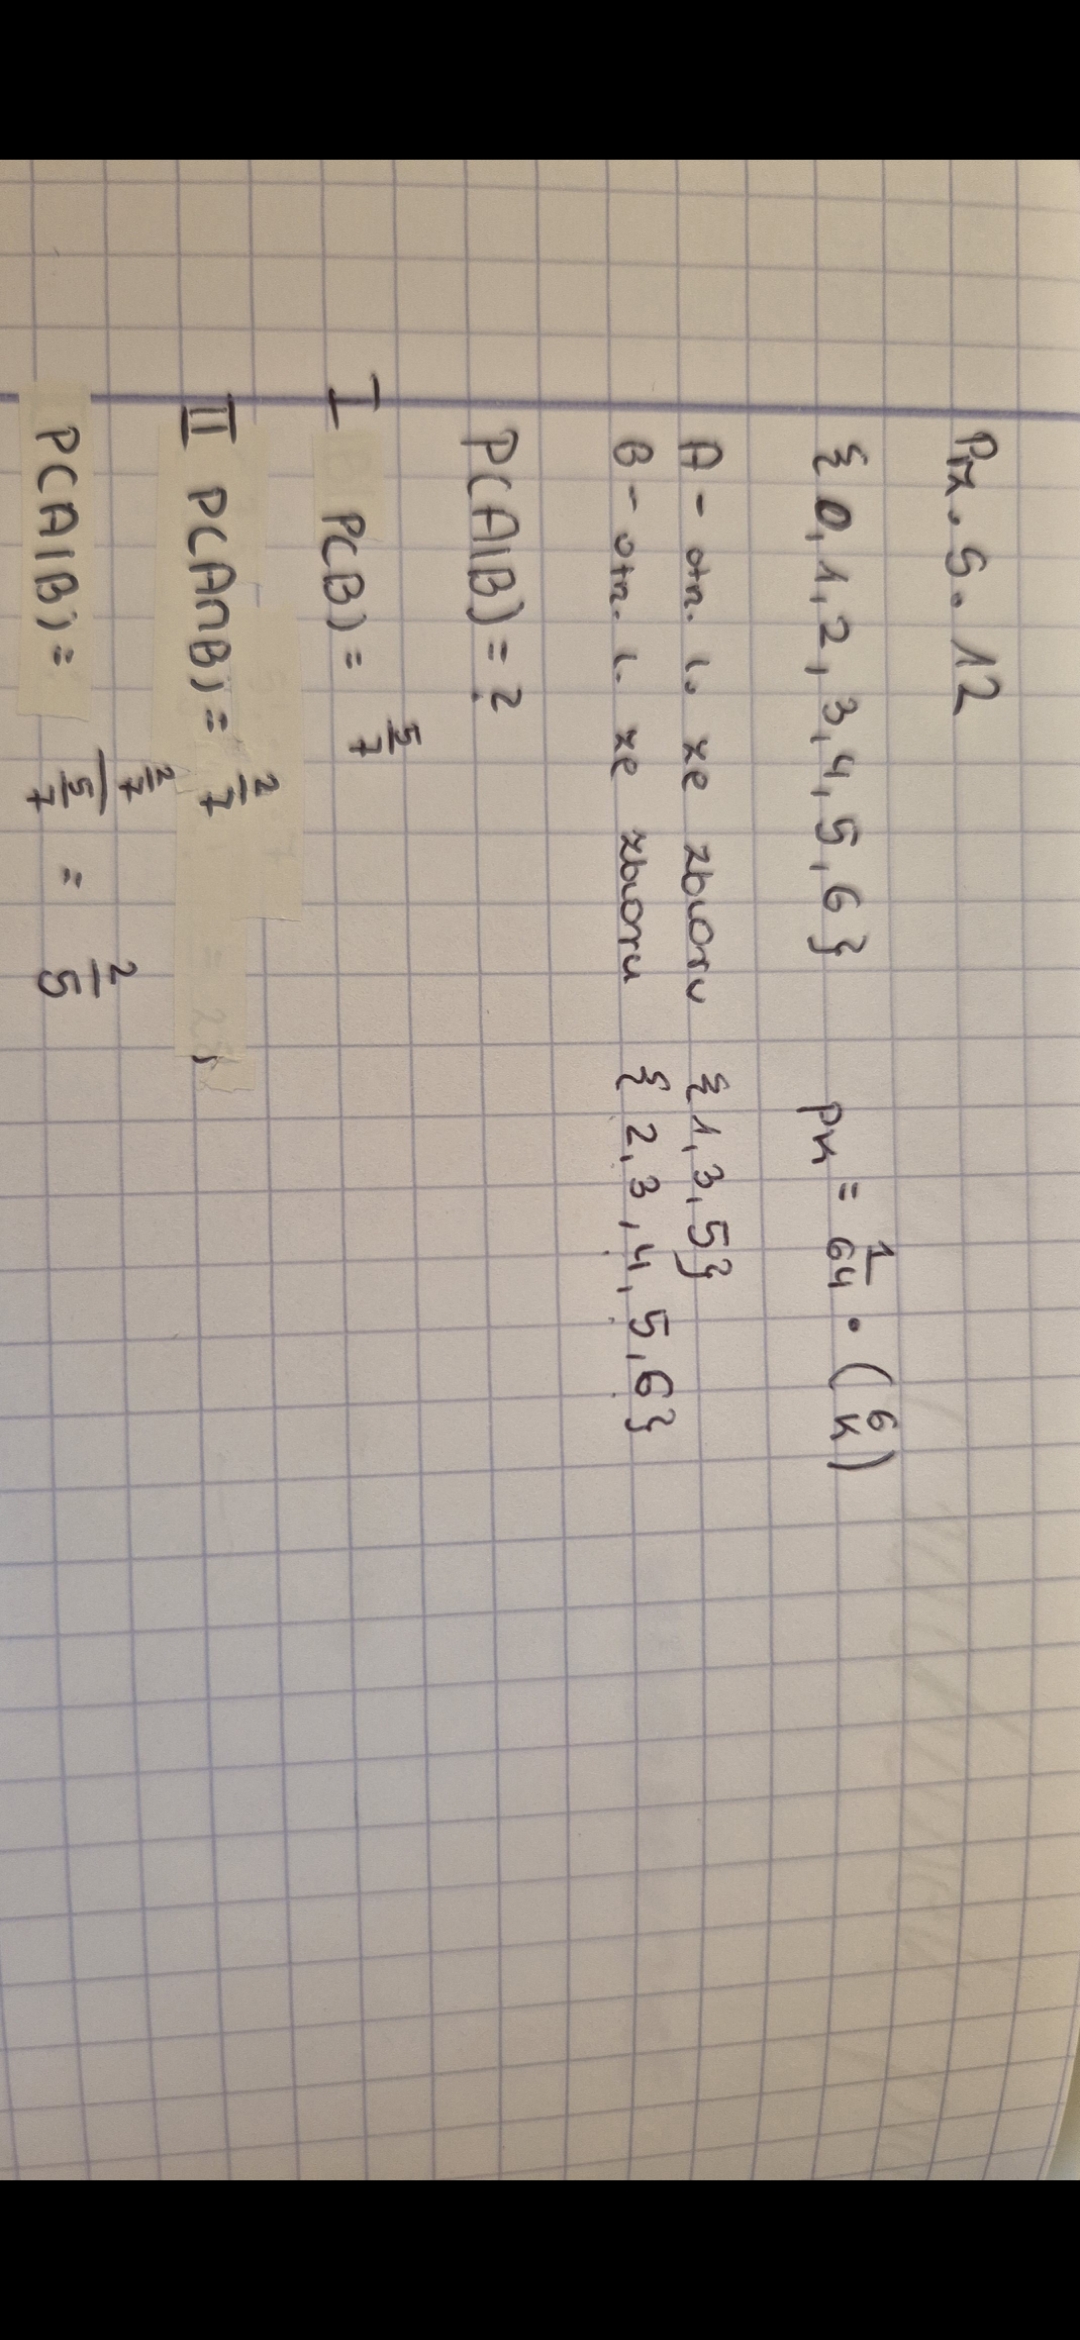 Prz. 5. 12
{ 0, 1, 2, 3, 4, 5, 6 } pk = 1/64 · (6 k)
A - otrz. l. ze zbioru {1, 3, 5}
B - otrz. l. ze zbioru { 2, 3, 4, 5, 6}
P(A|B) = ?
I P(B) = 5/7
II P(A∩B) = 2/7
P(A|B) = 2/7 / 5/7 = 2/5